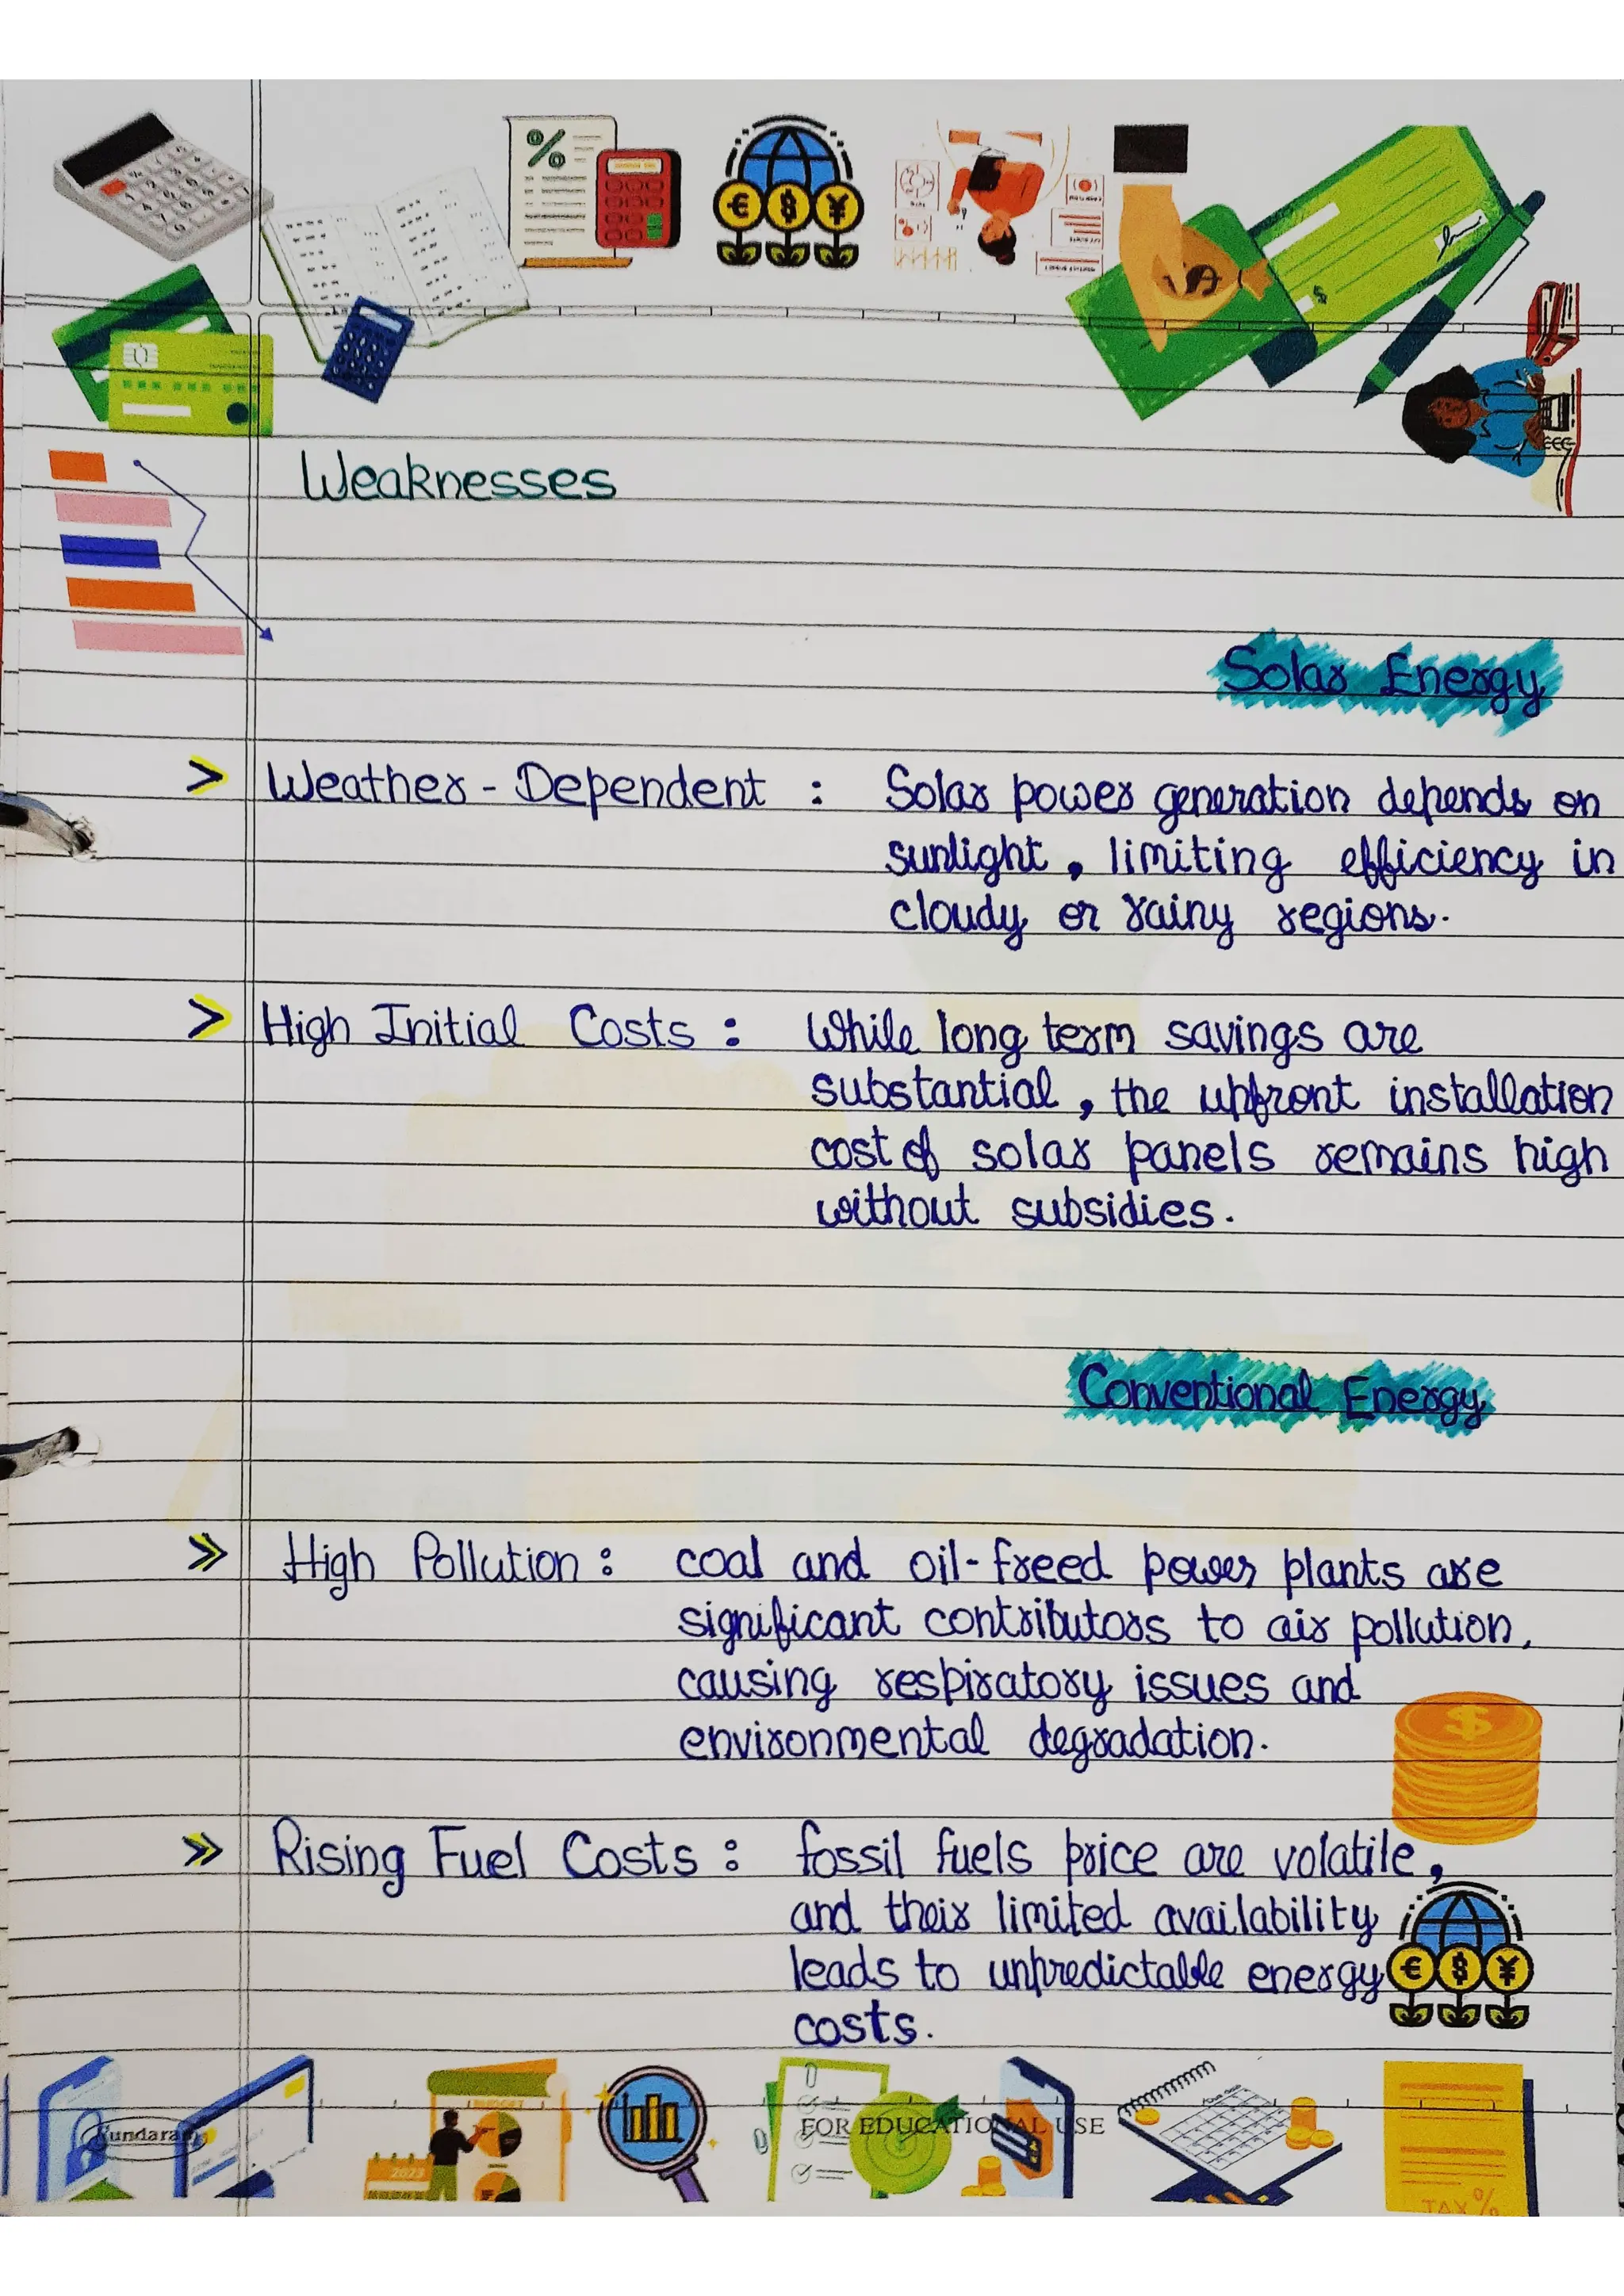 Weaknesses
Solar Energy
> Weather - Dependent : Solar power generation depends on
sunlight, limiting efficiency in
cloudy or rainy regions.
> High Initial Costs : While long term savings are
substantial, the upfront installation
cost of solar panels remains high
without subsidies.
Conventional Energy
» High Pollution : coal and oil-freed power plants are
significant contributors to air pollution,
causing respiratory issues and
environmental degradation.
» Rising Fuel Costs : fossil fuels price are volatile,
and their limited availability
leads to unpredictable energy
costs.
Sundaram
FOR EDUCATIONAL USE
BUDGET
2023
TAX %